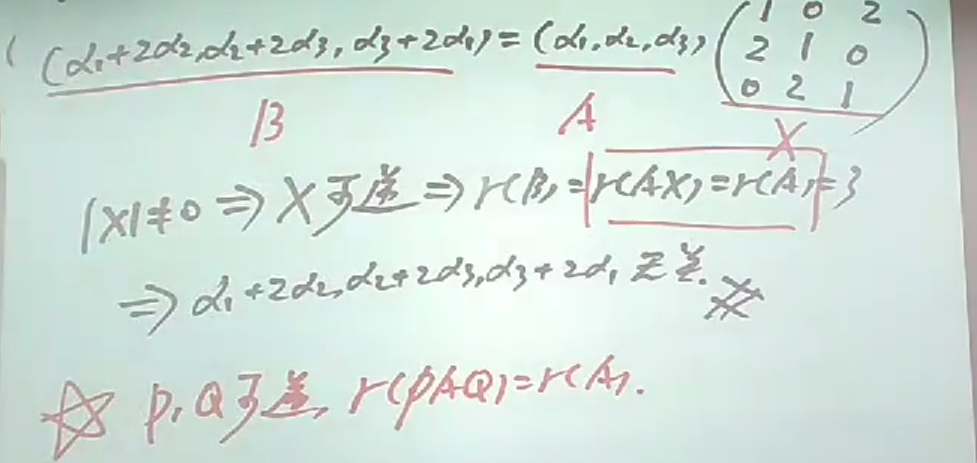 (α₁+2α₂,α₂+2α₃,α₃+2α₁)=(α₁,α₂,α₃)(1 0 2
2 1 0
0 2 1)
B A X
|X|≠0⇒X可逆⇒r(B)=r(AX)=r(A)=3
⇒α₁+2α₂,α₂+2α₃,α₃+2α₁无关.
☆ P,Q可逆,r(PAQ)=r(A).